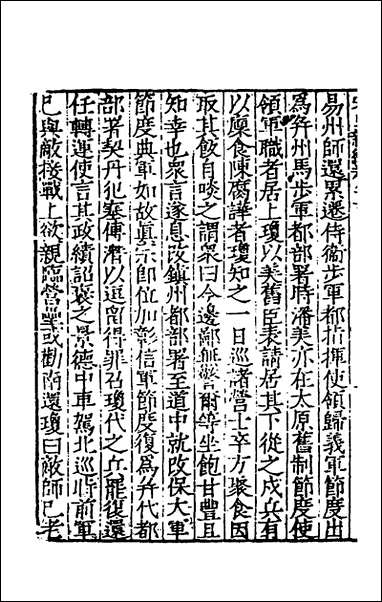 易州師還累遷侍衛步軍都指揮使領歸義軍節度出
爲并州馬步軍都部署時潘美亦在太原舊制節度使
領軍職者居上瓊以美舊臣表請居其下從之戍兵有
以廩食陳腐譁者瓊知之一日巡諸營士卒方聚食因
取其飯自啖之謂衆曰今邊鄙無警爾等坐飽甘豐且
知幸也衆言遂息改鎮州都部署至道中就改保大軍
節度典軍如故眞宗即位加彰信軍節度復爲并代都
部署契丹犯塞傅潛以逗留得罪召瓊代之兵罷復還
任轉運使言其政績詔褒之景德中車駕北巡時前軍
已與敵接戰上欲親臨營壘或勸南還瓊曰敵師已老